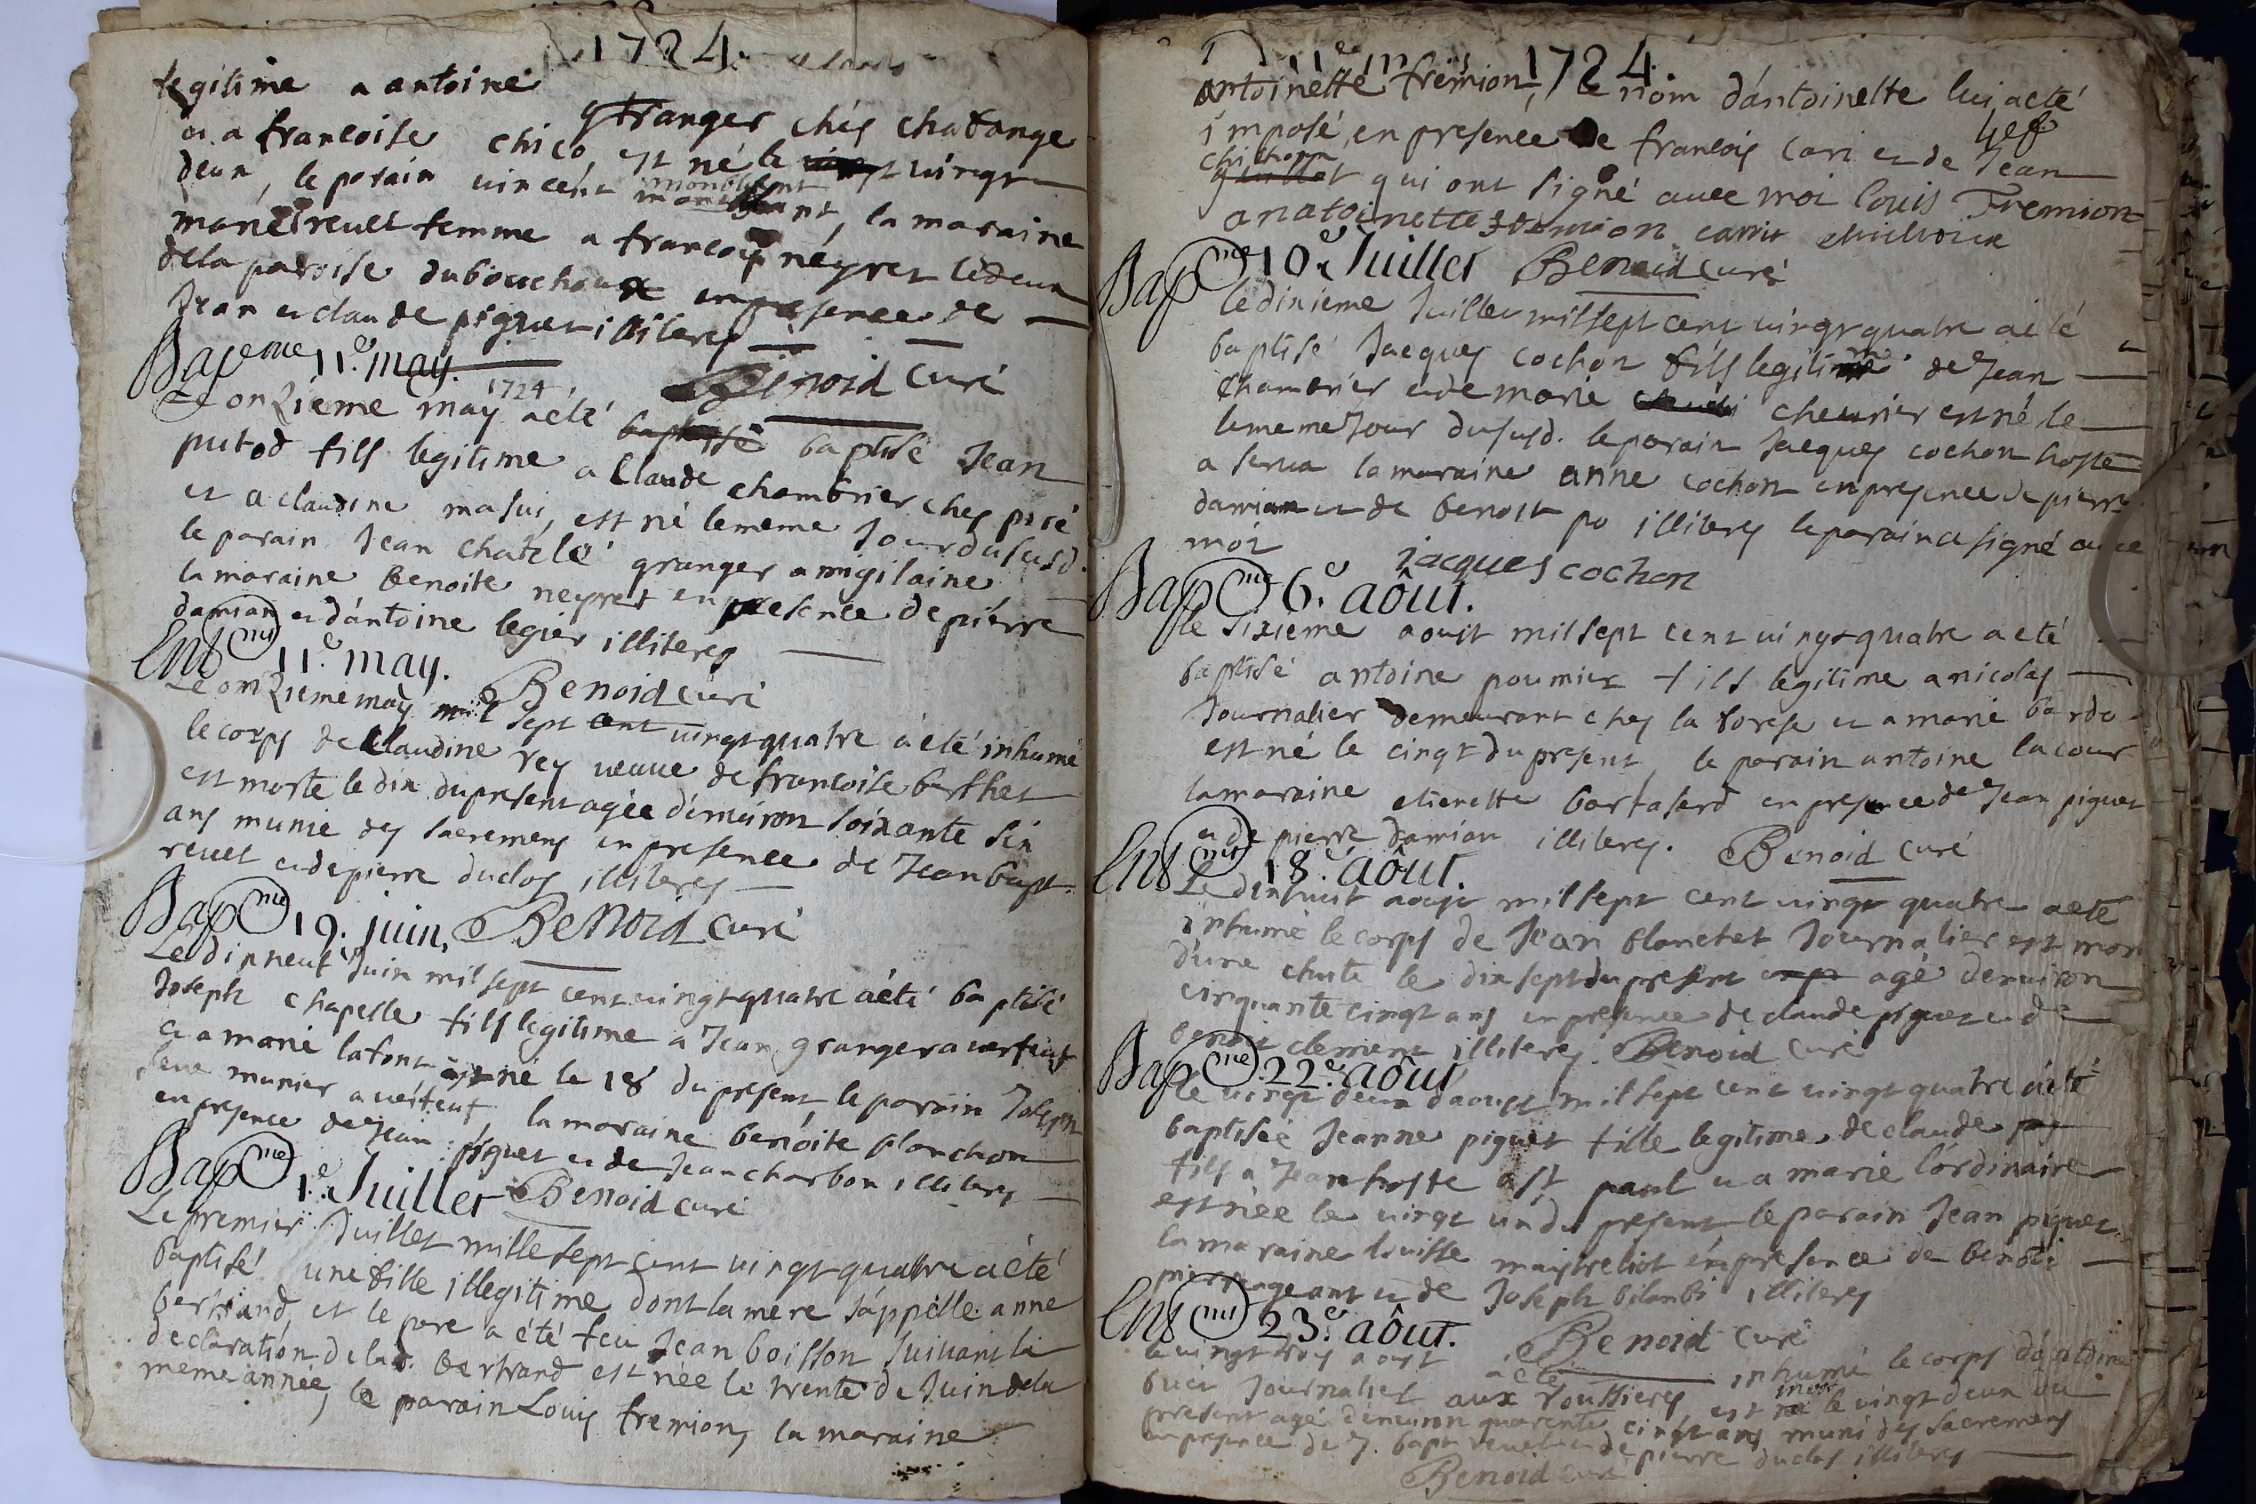 1724.
legitime a antoine
granger chés chatange
et a francoise chico, est né le vingt
deux, le parain vincent montchant, la maraine
marie revet femme a francois neyret lédeux
dela paroisse dubouchaux en presence de
Jean et claude piguet illiteres
Benoid curé
Bapme 11e. may.
1724
Le onzieme may aété baptisé baptisé Jean
putod fils legitime a Claude chambrier ches piré
et a claudine masui, est né lememe Jour dusus d.
le parain Jean chatelé granger amigilaine
la maraine benoite neyret en presence de pierre
damian et d'antoine legier illiteres
Entmnt 11e. may.
Benoid curé
Le onzieme may mil sept cent vingt quatre a été inhumé
le corps de Claudine rey veuve de francoise berthet
est morte le dix dupresent agée d'environ soixante six
ans munie des sacremens en presence de Jean bapt
revet et de pierre duclos illiteres
Bapme 19. juin.
Benoid curé
Le dixneuf Juin mil sept cent vingt quatre aété baptisé
Joseph chapelle fils legitime a Jean granger averteuf
et a marie lafont est né le 18 du present, le parain Joseph
seve munier a verteuf, la maraine benoite planchon
en presence de Jean piguet et de Jean charbon illiteres
Bapme 1er. Juillet
Benoid curé
Le premier Juillet mille sept cent vingt quatre aété
baptisé une fille illegitime dont la mere s'appelle anne
bertrand, et le pere a été feu Jean boisson suivant la
declaration de lad. bertrand est née le trente de Juin dela
meme année, le parain Louis fremion, la maraine
1724.
antoinette fremion, le nom d'antoinette lui aété
imposé, en presence de francois cari et de Jean
chichoux
qui ont signé avec moi louis Fremion
anatoinette fremion carrir chichoux
Bapme 10e. Juillet
Benoid curé
le dixieme Juillet mil sept cent vingt quatre aété
baptisé Jacques cochon fils legitime de Jean
chambrier et de marie chevrier est né le
lememe Jour du susd. le parain Jacques cochon hoste
a la maraine anne cochon en presence de pierre
damian et de benoit po illiteres le parain a signé avec
moi
jacques cochon
Bapme 6e. aôut.
le sixieme aoust mil sept cent vingt quatre a eté
baptisé antoine poumier fils legitime a nicolas
Journalier demeurant ches la et a marie bardo
est né le cinqt du present, le parain antoine lacour
la maraine etienette bartaserd en presence de Jean piguet
et de pierre damian illiteres.
Benoid curé
Entmnt 18e. aôut.
Le dixhuit aoust mil sept cent vingt quatre aété
inhumé le corps de Jean blanchet Journalier est mort
d'une chute le dix sept du present agé d'environ
cinquante cinqt ans en presence de claude piguet et de
benoit clement illiteres. Benoid curé
Bapme 22e. aôut
le vingt deux d'aoust mil sept cent vingt quatre aété
baptisée Jeanne piguet fille legitime de claude
fils a Jean hoste a st paul et a marie l'ordinaire
est née le vingt un du present le parain Jean piguet
la maraine louisse maystreliot en presence de benoit
et de Joseph bilonbi illiteres
Entmnt 23e. aôut.
Benoid curé
le vingt trois aoust a été inhumé le corps d'antoine
buei Journalier aux roussieres est mort le vingt deux du
present agé d'environ quarente cinqt ans muni des sacremens
en presence de J. bapt revet et de pierre duclos illiteres
Benoid curé